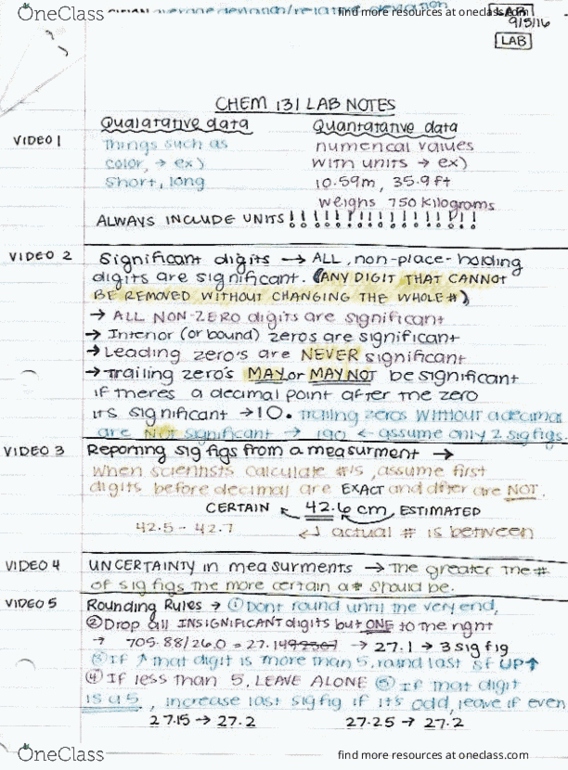 OneClass
average deviation/relative deviation
find more resources at oneclass.com
LAB
9/5/16
LAB
CHEM 131 LAB NOTES
Qualatative data
Quantatative data
VIDEO 1
Things such as
color, → ex)
short, long
numerical values
with units → ex)
10.59m, 35.9ft
weighs 750 kilograms
ALWAYS INCLUDE UNITS!!!!!!!!!!!!!!!
VIDEO 2
Significant digits → ALL, non-place-holding
digits are significant. (ANY DIGIT THAT CANNOT
BE REMOVED WITHOUT CHANGING THE WHOLE #)
→ ALL NON-ZERO digits are significant
→ Interior (or bound) zeros are significant
→ Leading zero's are NEVER significant
→ Trailing zero's MAY or MAY NOT be significant
if theres a decimal point after the zero
its significant → 10. Trailing zeros without a decimal
are NOT significant → 190 ← assume only 2 sig figs.
VIDEO 3
Reporting sig figs from a measurment →
When scientists calculate #'s, assume first
digits before decimal are EXACT and after are NOT.
CERTAIN ← 42.6 cm ESTIMATED
42.5 - 42.7
actual # is between
VIDEO 4
UNCERTAINTY in measurments → The greater the #
of sig figs the more certain a # should be.
VIDEO 5
Rounding Rules → ① Dont round until the very end,
② Drop all INSIGNIFICANT digits but ONE to the right
→ 705.88/26.0 = 27.1492307 → 27.1 → 3 sig fig
③ If ↑ that digit is more than 5, round last sf UP↑
④ If less than 5, LEAVE ALONE ⑤ If that digit
is a 5, increase last sig fig if it's odd, leave if even
27.15 → 27.2
27.25 → 27.2
OneClass
find more resources at oneclass.com